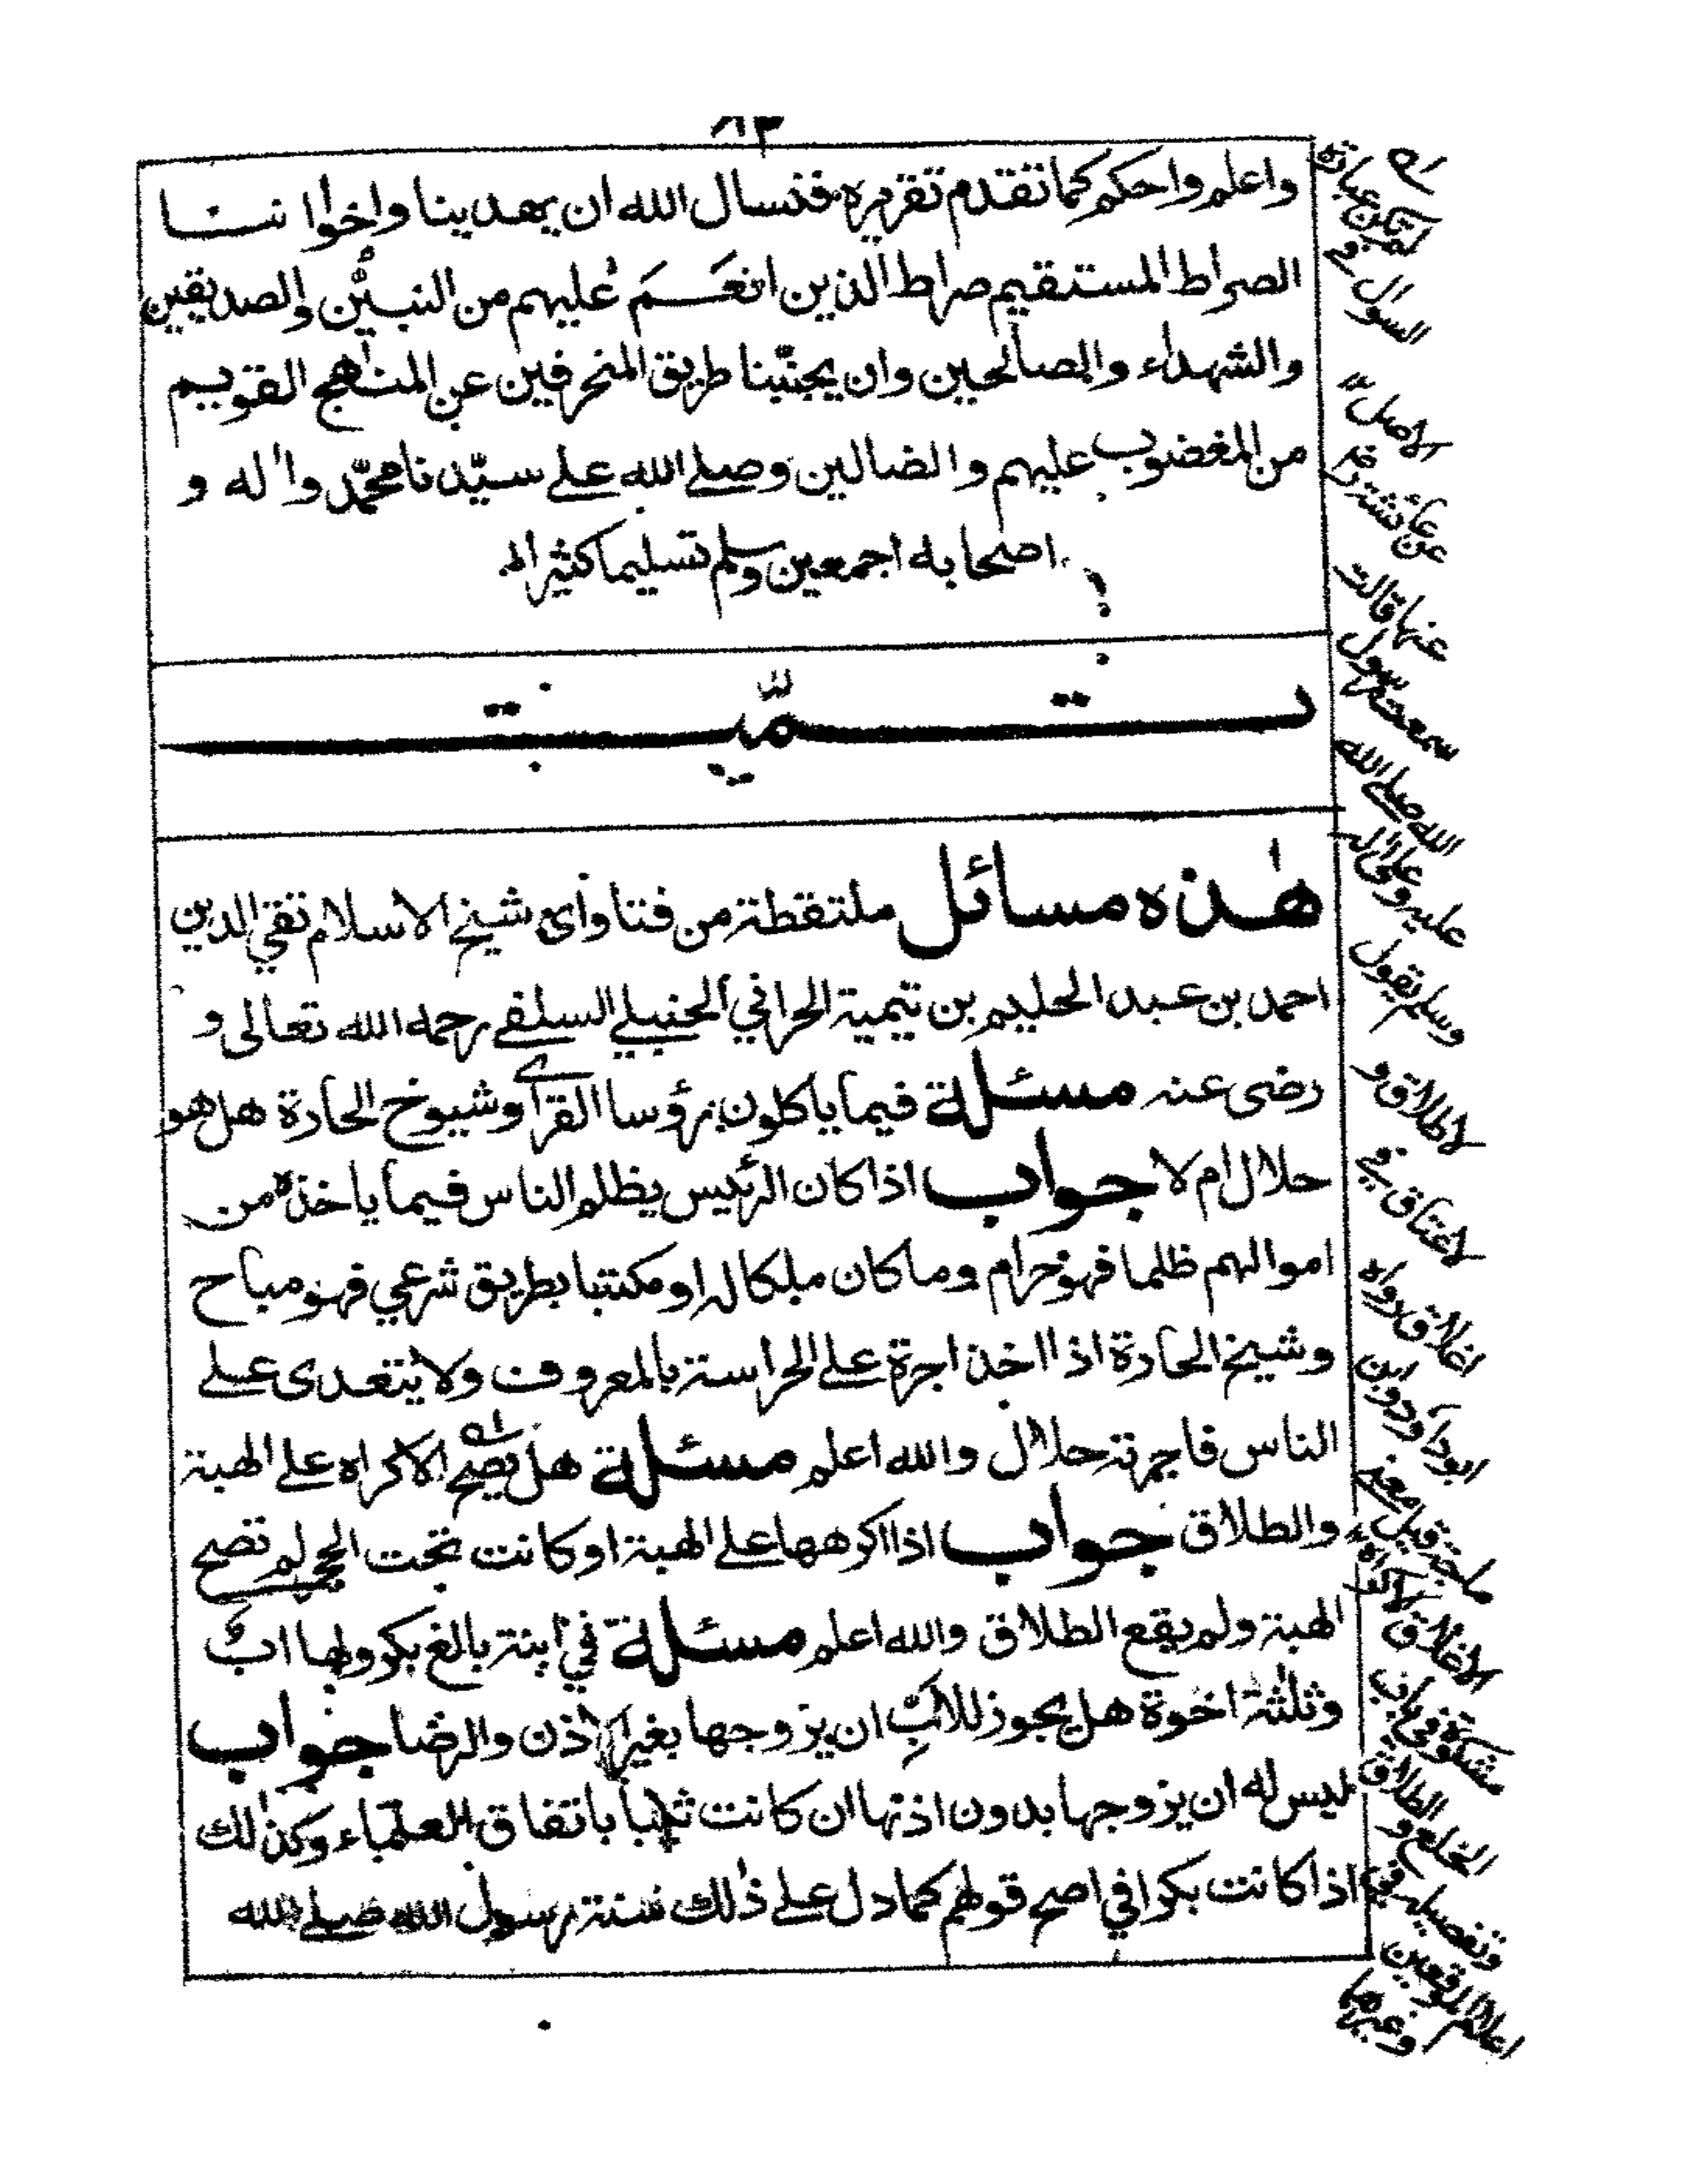 ٨٣
واعلم واحكم كما تقدم تقريره فنسال الله ان يهدينا واخواننا
الصراط المستقيم صراط الذين انعم عليهم من النبيّن والصديقين
والشهداء والصالحين وان يجنّبنا طريق المنحرفين عن المناهج القويم
من المغضوب عليهم والضالين وصلے الله علے سيّدنا محمّد واله و
اصحابه اجمعين وسلم تسليما كثيرا
تمّت
هٰذه مسائل ملتقطة من فتاوٰى شيخ الاسلام تقي الدين
احمد بن عبد الحليم بن تيمية الحراني الحنبلي السلفے رحمه الله تعالى و
رضى عنه مسئلة فيما ياكلون رؤسا القرٰى وشيوخ الحارة هل هو
حلال ام لا جواب اذا كان الرئيس يظلم الناس فيما ياخذه من
اموالهم ظلما فهو حرام وما كان ملكا له او مكتبا بطريق شرعي فهو مباح
وشيخ الحارة اذا اخذ اجرة علے الحراسة بالمعروف ولا يتعدى علے
الناس فاجرته حلال والله اعلم مسئلة هل يصح الاكراه علے الهبة
والطلاق جواب اذا اكرهها علے الهبة او كانت تحت الحجر لم تصح
الهبة ولم يقع الطلاق والله اعلم مسئلة في ابنة بالغ بكر ولها اب
وثلثة اخوة هل يجوز للاب ان يزوجها بغير الاذن والرضا جواب
ليس له ان يزوجها بدون اذنها ان كانت ثيبا باتفاق العلماء وكذٰلك
اذا كانت بكرا في اصح قولهم كما دل علے ذٰلك سنة رسول الله صلے الله
لم تكن عبارة
السوال في
الاصل
عن عائشة رضے
عنها قالت
سمعت رسول
الله صلے الله
عليه وعلٰى اله
وسلم يقول
لا طلاق و
لا عتاق في
اغلاق رواه
ابو داود وابن
ماجة قيل معنے
الاغلاق الاكراه
مشكوة في باب
الخلع والطلاق
وتفصيله في
اعلام الموقعين
وغيرها